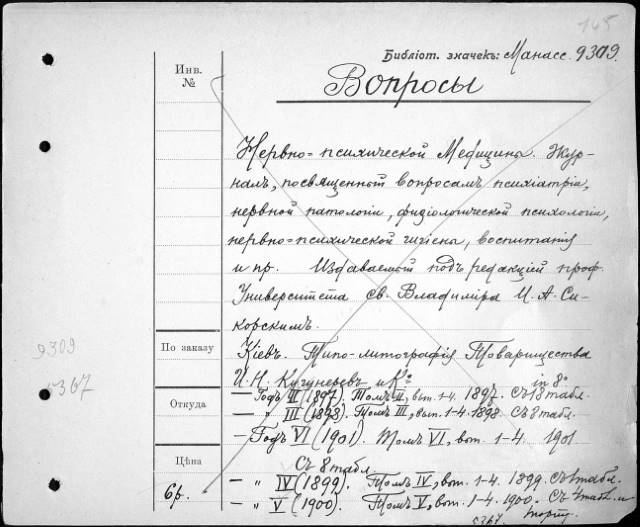 145
Библіот. значекъ: Манасс. 9309.
Инв. №
Вопросы
Нервно-психической Медицины. Жур-
налъ, посвященный вопросамъ психіатріи,
нервной патологіи, физіологической психологіи,
нервно-психической гигіены, воспитанія
и пр. Издаваемый подъ редакціей проф.
Университета св. Владиміра И. А. Си-
корскимъ.
9309
5367
По заказу
Кіевъ. Типо-литографія Товарищества
И. Н. Кушнеревъ и Кº in 8º
— Годъ II (1897). Томъ II, вып. 1-4. 1897. Съ 8 табл.
Откуда
— " III (1898). Томъ III, вып. 1-4. 1898. Съ 8 табл.
— Годъ VI (1901). Томъ VI, вып. 1-4. 1901
Съ 8 табл.
Цѣна
6 р.
— " IV (1899). Томъ IV, вып. 1-4. 1899. Съ табл.
— " V (1900). Томъ V, вып. 1-4. 1900. Съ табл. и
портр.
5367.